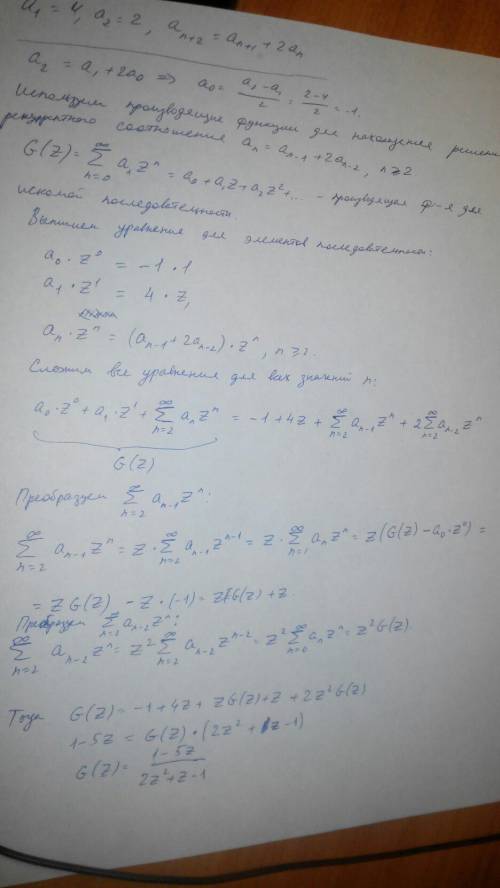 a₁ = 4, a₂ = 2, aₙ₊₂ = aₙ₊₁ + 2aₙ
a₂ = a₁ + 2a₀ ⇒ a₀ = (a₂ - a₁)/2 = (2-4)/2 = -1.
Используем производящие функции для нахождения решения
рекуррентного соотношения aₙ = aₙ₋₁ + 2aₙ₋₂, n ≥ 2
G(z) = ∑_{n=0}^{∞} aₙzⁿ = a₀ + a₁z + a₂z² + ... - производящая ф-я для
искомой последовательности.
Выпишем уравнения для элементов последовательности:
a₀ · z⁰ = -1 · 1
a₁ · z¹ = 4 · z,
aₙ · zⁿ = (aₙ₋₁ + 2aₙ₋₂) · zⁿ, n ≥ 2.
Сложим все уравнения для всех значений n:
a₀ · z⁰ + a₁ · z¹ + ∑_{n=2}^{∞} aₙzⁿ = -1 + 4z + ∑_{n=2}^{∞} aₙ₋₁zⁿ + 2∑_{n=2}^{∞} aₙ₋₂zⁿ
G(z)
Преобразуем ∑_{n=2}^{∞} aₙ₋₁zⁿ:
∑_{n=2}^{∞} aₙ₋₁zⁿ = z · ∑_{n=2}^{∞} aₙ₋₁zⁿ⁻¹ = z · ∑_{n=1}^{∞} aₙzⁿ = z(G(z) - a₀ · z⁰) =
= zG(z) - z · (-1) = zG(z) + z.
Преобразуем ∑_{n=2}^{∞} aₙ₋₂zⁿ:
∑_{n=2}^{∞} aₙ₋₂zⁿ = z² ∑_{n=2}^{∞} aₙ₋₂zⁿ⁻² = z² ∑_{n=0}^{∞} aₙzⁿ = z²G(z)
Тогда G(z) = -1 + 4z + zG(z) + z + 2z²G(z)
1 - 5z = G(z) · (2z² + z - 1)
G(z) = (1-5z)/(2z²+z-1)